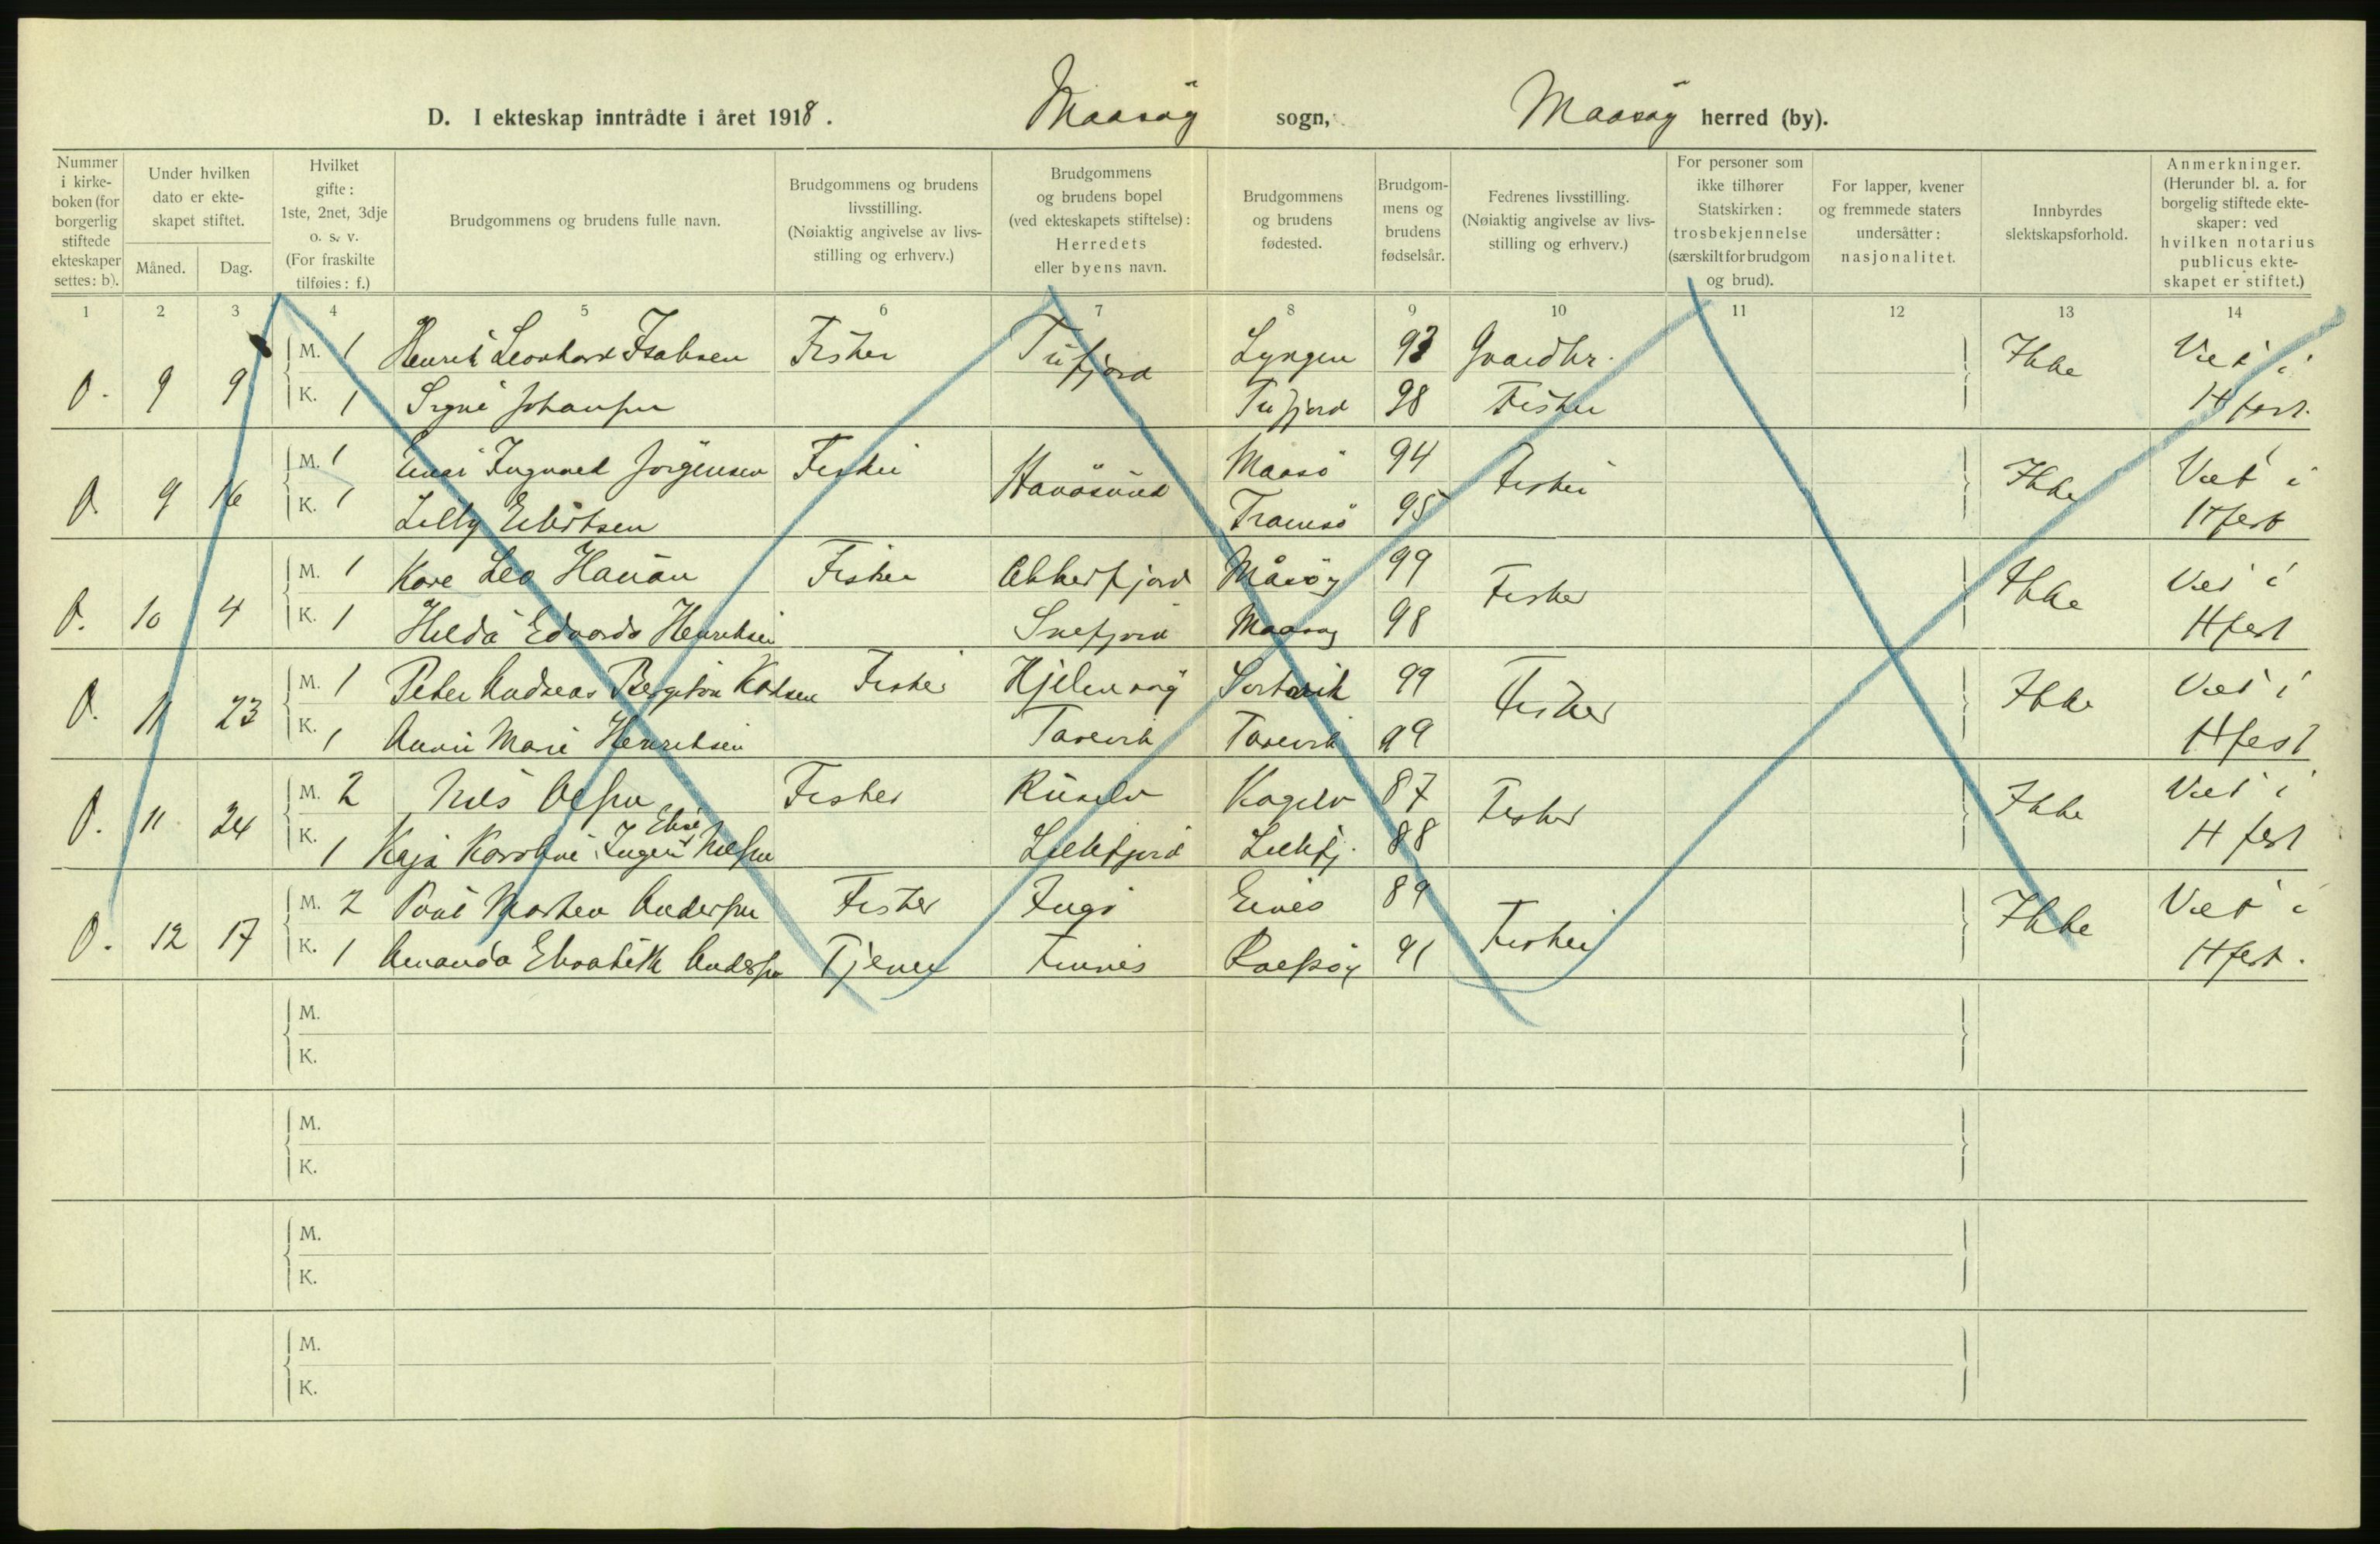 D. I ekteskap inntrådte i året 1918. Maasøy sogn, Maasøy herred (by).
Nummer i kirkeboken (for borgerlig stiftede ekteskaper settes: b).
Under hvilken dato er ekteskapet stiftet.
Måned. Dag.
Hvilket gifte: 1ste, 2net, 3dje o. s. v. (For fraskilte tilføies: f.)
Brudgommens og brudens fulle navn.
Brudgommens og brudens livsstilling. (Nøiaktig angivelse av livsstilling og erhverv.)
Brudgommens og brudens bopel (ved ekteskapets stiftelse): Herredets eller byens navn.
Brudgommens og brudens fødested.
Brudgommens og brudens fødselsår.
Fedrenes livsstilling. (Nøiaktig angivelse av livsstilling og erhverv.)
For personer som ikke tilhører Statskirken: trosbekjennelse (særskilt for brudgom og brud).
For lapper, kvener og fremmede staters undersåtter: nasjonalitet.
Innbyrdes slektskapsforhold.
Anmerkninger. (Herunder bl. a. for borgelig stiftede ekteskaper: ved hvilken notarius publicus ekteskapet er stiftet.)
1 2 3 4 5 6 7 8 9 10 11 12 13 14
M. 1 Henrik Leonhard Isaksen Fisker Tufjord Lyngen 93 Gaardbr. Ikke Viet i
O. 9 9 K. 1 Signe Johansen Tufjord 98 Fisker Hfest.
M. 1 Einar Ingvard Jörgensen Fisker Havösund Maasö 94 Fisker Ikke Viet i
O. 9 16 K. 1 Lilly Eilertsen Tromsö 95 Hfest
M. 1 Kåre Leo Hauan Fisker Akkerfjord Måsöy 99 Fisker Ikke Viet i
O. 10 4 K. 1 Hilda Edvarda Henriksen Snefjord Maasøy 98 Hfest
M. 1 Peter Andreas Bergiton Karlsen Fisker Hjelmsöy Sortvik 99 Fisker Ikke Viet i
O. 11 23 K. 1 Anni Marie Henriksen Tarevik Tarevik 99 Hfest
M. 2 Nils Olsen Fisker Ruselv Kagelv 87 Fisker Ikke Viet i
O. 11 24 K. 1 Kaja Karoline Inger Elise Nilsen Lillefjord Lillefj. 88 Hfest
M. 2 Paul Morten Andersen Fisker Ingö 89 Fisker Ikke Viet i
O. 12 17 K. 1 Amanda Elisabeth Andersen Tjener Finnes Rolfsöy 91 Hfest.
M.
K.
M.
K.
M.
K.
M.
K.